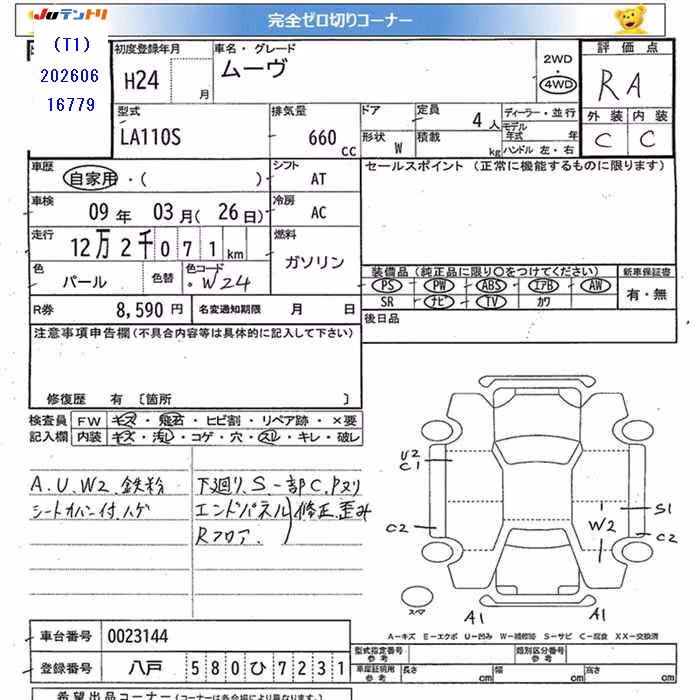 JUテントリ 完全ゼロ切りコーナー
(T1)
202606
16779
初度登録年月 車名・グレード 評価点
H24 月 ムーヴ 2WD 4WD RA
型式 排気量 ドア 定員 4人 ディーラー・並行 外装 内装
LA110S 660 cc 形状 W 積載 kg モデル年式 年 ハンドル 左・右 C C
車歴 自家用・( ) シフト AT セールスポイント (正常に機能するものに限ります)
車検 09年 03月( 26日) 冷房 AC
走行 12万2千071km 燃料 ガソリン
色 パール 色替 色コード W24
装備品 (純正品に限り○をつけてください) 新車保証書
PS PW ABS エアB AW 有・無
SR ナビ TV カワ
R券 8,590円 名変通知期限 月 日 後日品
注意事項申告欄(不具合内容等は具体的に記入して下さい)
修復歴 有 [箇所 ]
検査員 FW キズ・飛石・ヒビ割・リペア跡・×要
記入欄 内装 キズ・汚レ・コゲ・穴・スレ・キレ・破レ
A.U.W2.鉄粉 下廻り.S.一部C.Pヌリ
シートカバー付.ハゲ エンドパネル 修正.歪み
Rフロア.
U2
C1
C2
W2
S1
C2
スペア A1 A1
A-キズ E-エクボ U-凹み W-補修跡 S-サビ C-腐食 XX-交換済
車台番号 0023144
型式指定番号 参考 類別区分番号 参考
登録番号 八戸 580ひ7231
車庫証明用 参考 長さ cm 幅 cm 高さ cm
希望出品コーナー (コーナーは各会場により異なります。)